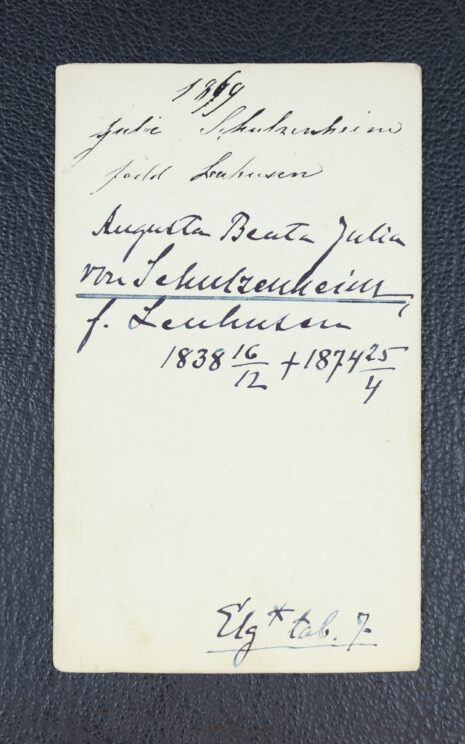 1869
Julie Schulzenheim
född Lenhusen
Augusta Beata Julia
von Schulzenheim,
f. Leuhusen
1838 16/12 + 1874 25/4
Elg * tab. 7